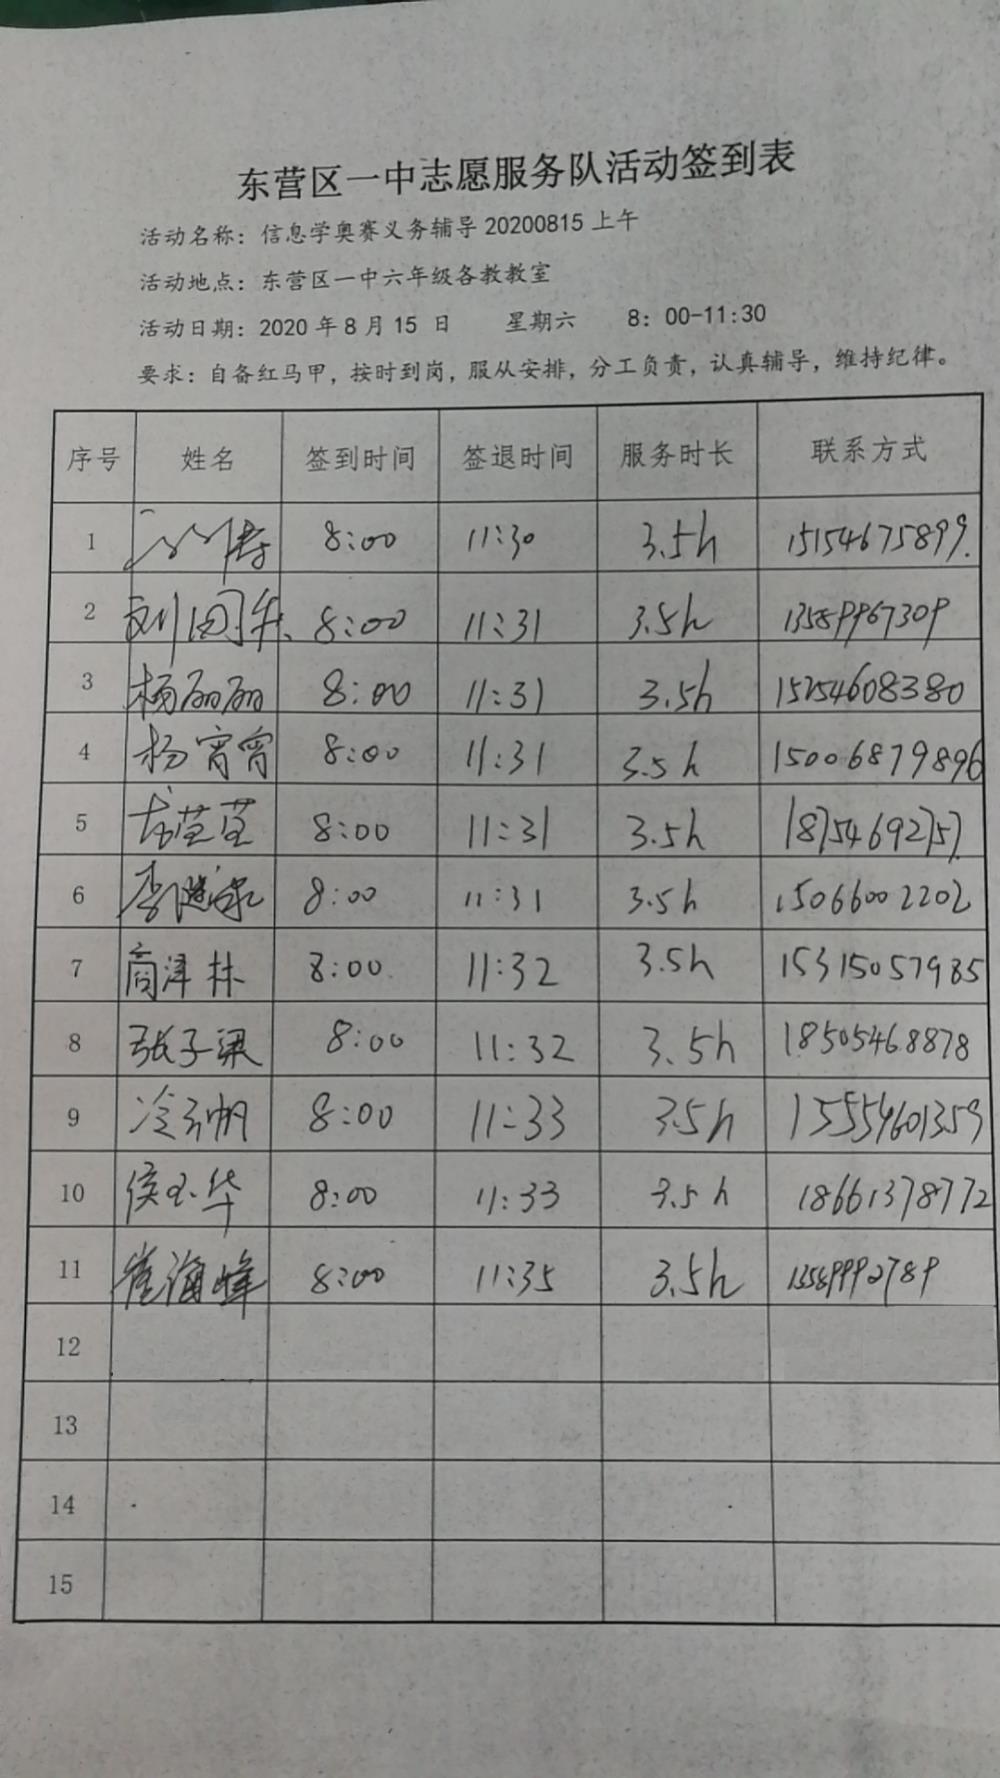 东营区一中志愿服务队活动签到表
活动名称：信息学奥赛义务辅导 20200815 上午
活动地点：东营区一中六年级各教教室
活动日期：2020 年 8 月 15 日 星期六 8：00-11:30
要求：自备红马甲，按时到岗，服从安排，分工负责，认真辅导，维持纪律。
序号 姓名 签到时间 签退时间 服务时长 联系方式
1 涛 8:00 11:30 3.5h 15154675899.
2 刘国军 8:00 11:31 3.5h 13589967309
3 杨丽丽 8:00 11:31 3.5h 15254608380
4 杨宵宵 8:00 11:31 3.5h 15006879896
5 8:00 11:31 3.5h 18754692757
6 李 8:00 11:31 3.5h 15066002202
7 商泽林 8:00 11:32 3.5h 15315057985
8 张子梁 8:00 11:32 3.5h 18505468878
9 冷 帆 8:00 11:33 3.5h 15554601359
10 侯玉华 8:00 11:33 3.5h 18661378772
11 崔海峰 8:00 11:35 3.5h 13589992789
12
13
14
15